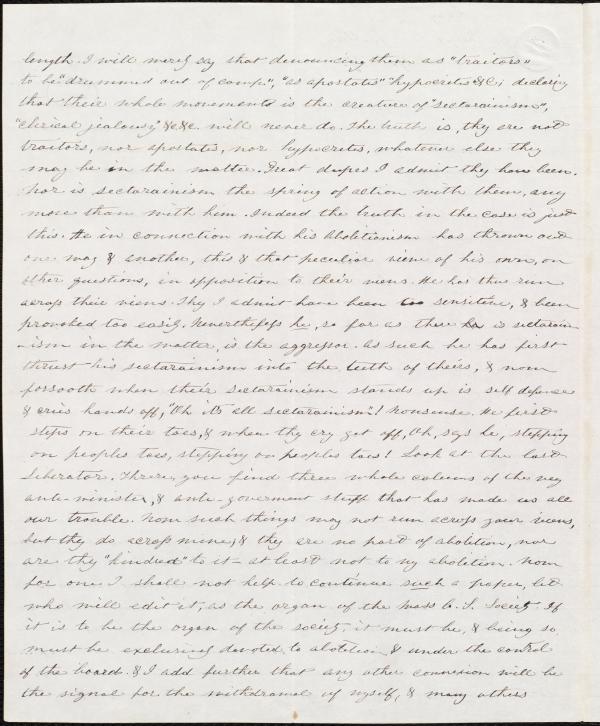 length. I will merely say that denouncing them as "traitors"
to be "drummed out of camp", "as apostates" "hypocrites &c; declaring
that their whole movements is the creature of "sectarainism",
"clerical jealousy" &c &c. will never do. The truth is, they are not
traitors, nor apostates, nor hypocrites, whatever else they
may be in the matter. Great dupes I admit they have been.
Nor is sectarainism the spring of action with them, any
more than with him. Indeed the truth in the case is just
this. He in connection with his Abolitionism has thrown out
one way & another, this & that peculiar view of his own, on
other questions, in opposition to their views. He has thus run
across their views. They I admit have been too sensitive, & been
provoked too easily. Nevertheless he, so far as there is sectarain-
-ism in the matter, is the aggressor. As such he has first
thrust his sectarainism into the teeth of theirs, & now
forsooth when their sectarainism stands up is self defense
& cries hands off, "Oh it's all sectarainism"! Nonsense. He first
steps on their toes, & when they cry get off, Oh, says he, stepping
on peoples toes, stepping on peoples toes! Look at the last
Liberator. There, you find three whole colums of the very
anti-minister, & anti-goverment stuff that has made us all
our trouble. Now such things may not run across your views,
but they do across mine; & they are no part of abolition, nor
are they "kindred" to it - at least not to my abolition. Now
for one I shall not help to continue such a paper, let
who will edit it, as the organ of the Mass A. S. Society. If
it is to be the organ of the society, it must be, & being so
must be exclusively devoted to abolition & under the control
of the board. & I add further that any other connexion will be
the signal for the withdrawal of myself, & many others